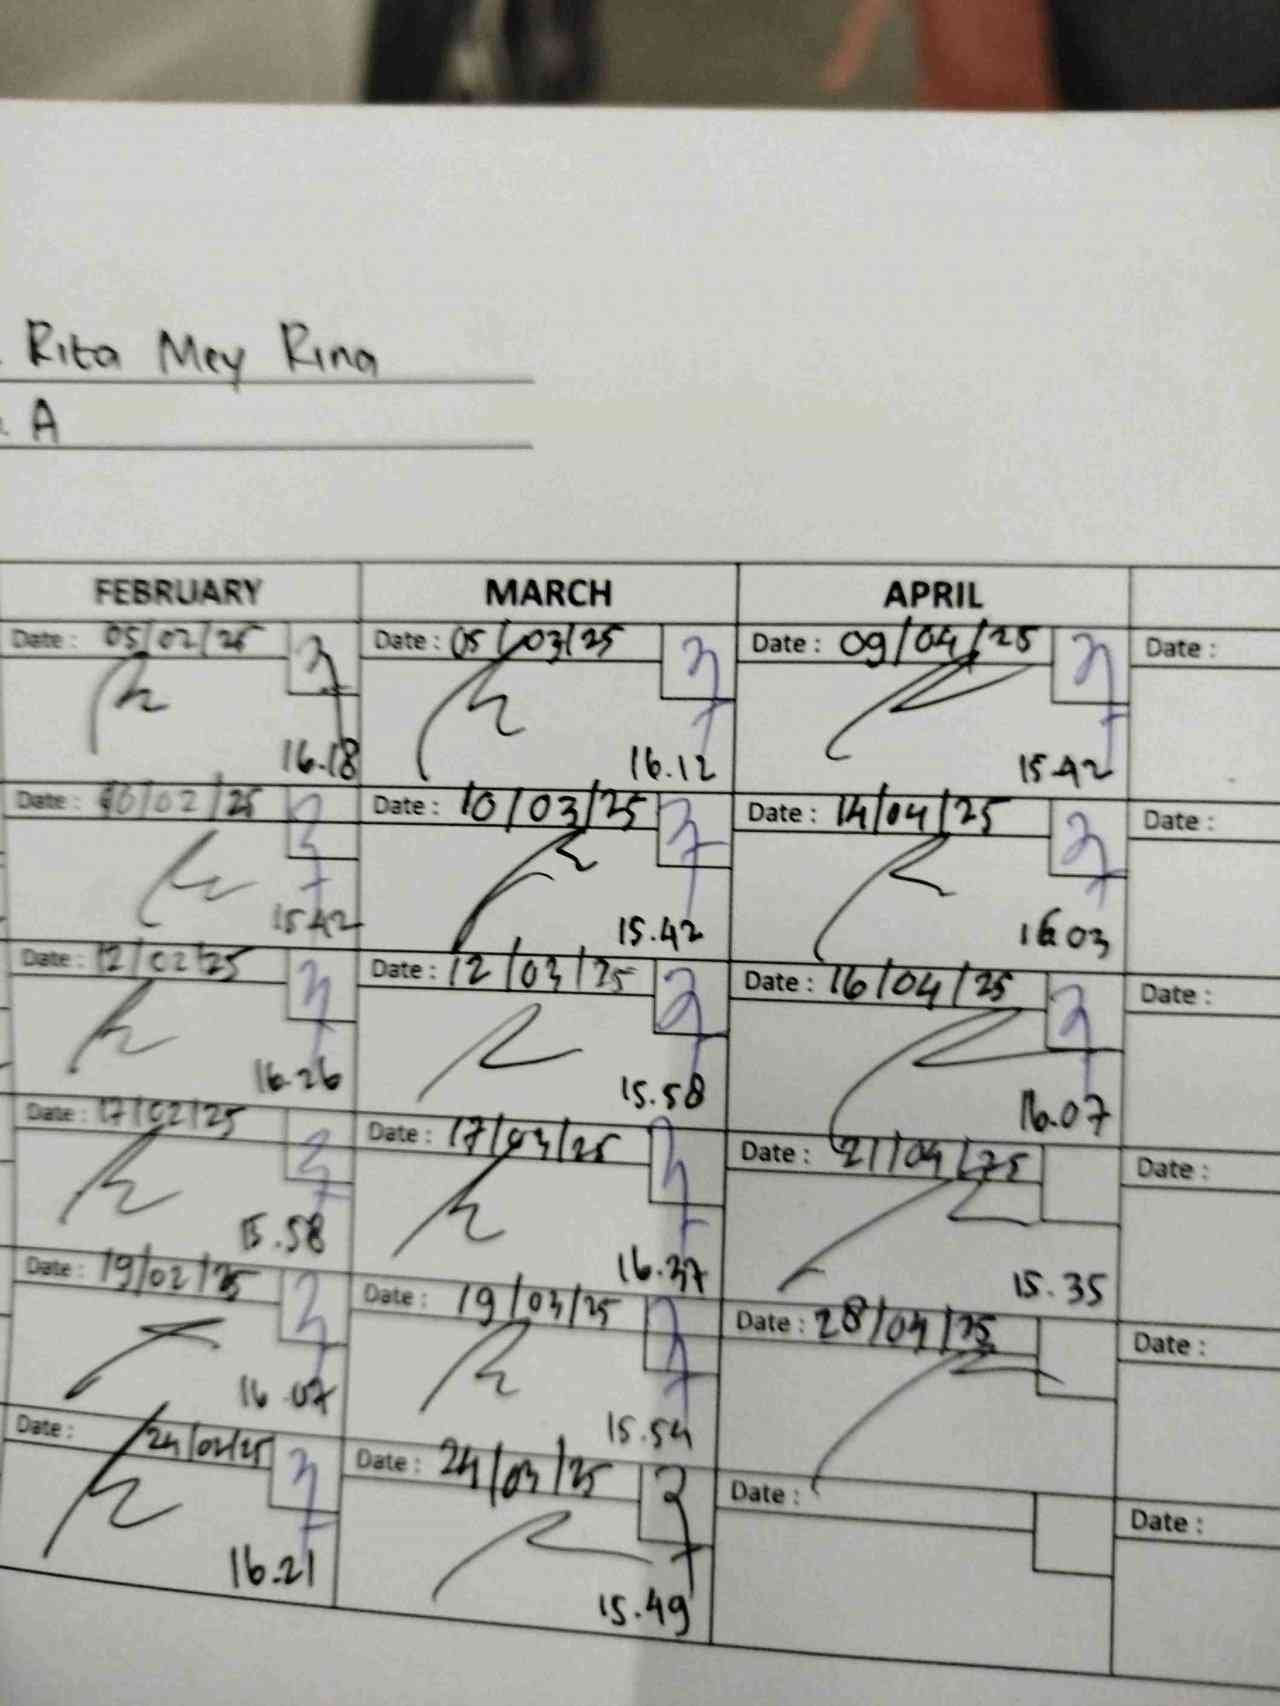 Rita Mey Rina
A
FEBRUARY MARCH APRIL
Date : 05/02/25 Date : 05/03/25 Date : 09/04/25 Date :
16.18 16.12 15.42
Date : 10/02/25 Date : 10/03/25 Date : 14/04/25 Date :
15.42 15.42 16.03
Date : 12/02/25 Date : 12/03/25 Date : 16/04/25 Date :
16.26 15.58 16.07
Date : 17/02/25 Date : 17/03/25 Date : 21/04/25 Date :
15.58 16.37 15.35
Date : 19/02/25 Date : 19/03/25 Date : 28/04/25 Date :
16.07 15.54
Date : 24/02/25 Date : 24/03/25 Date : Date :
16.21 15.49